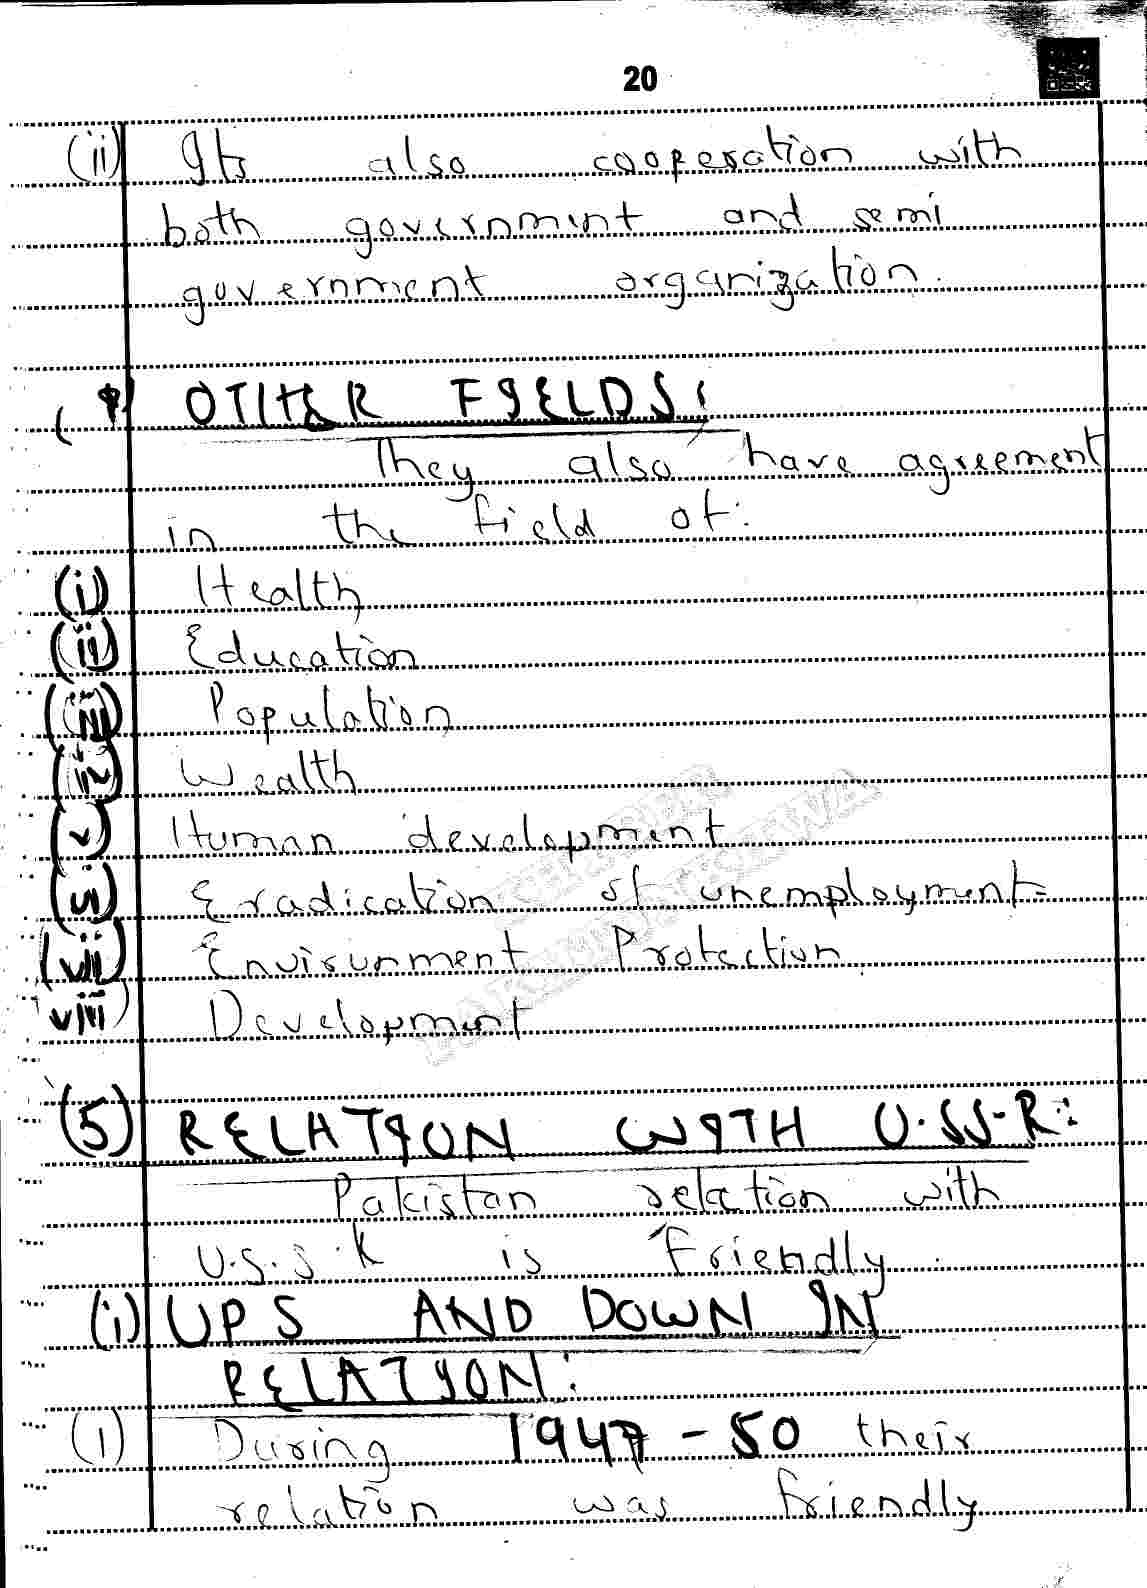 20
(ii) Its also cooperation with
both governmint and semi
government organization.
OTHER FIELDS:
They also have agreement
in the field of:
(i) Health
(ii) Education
(iii) Population
(iv) Wealth
(v) Human development
(vi) Eradication of unemployment
(vii) Envirunment Protection
viii) Development
(5) RELATION WITH U.S.S.R:
Pakistan relation with
U.S.S.R is friendly.
(i) UPS AND DOWN IN
RELATION:
(i) During 1947-50 their
relation was friendly